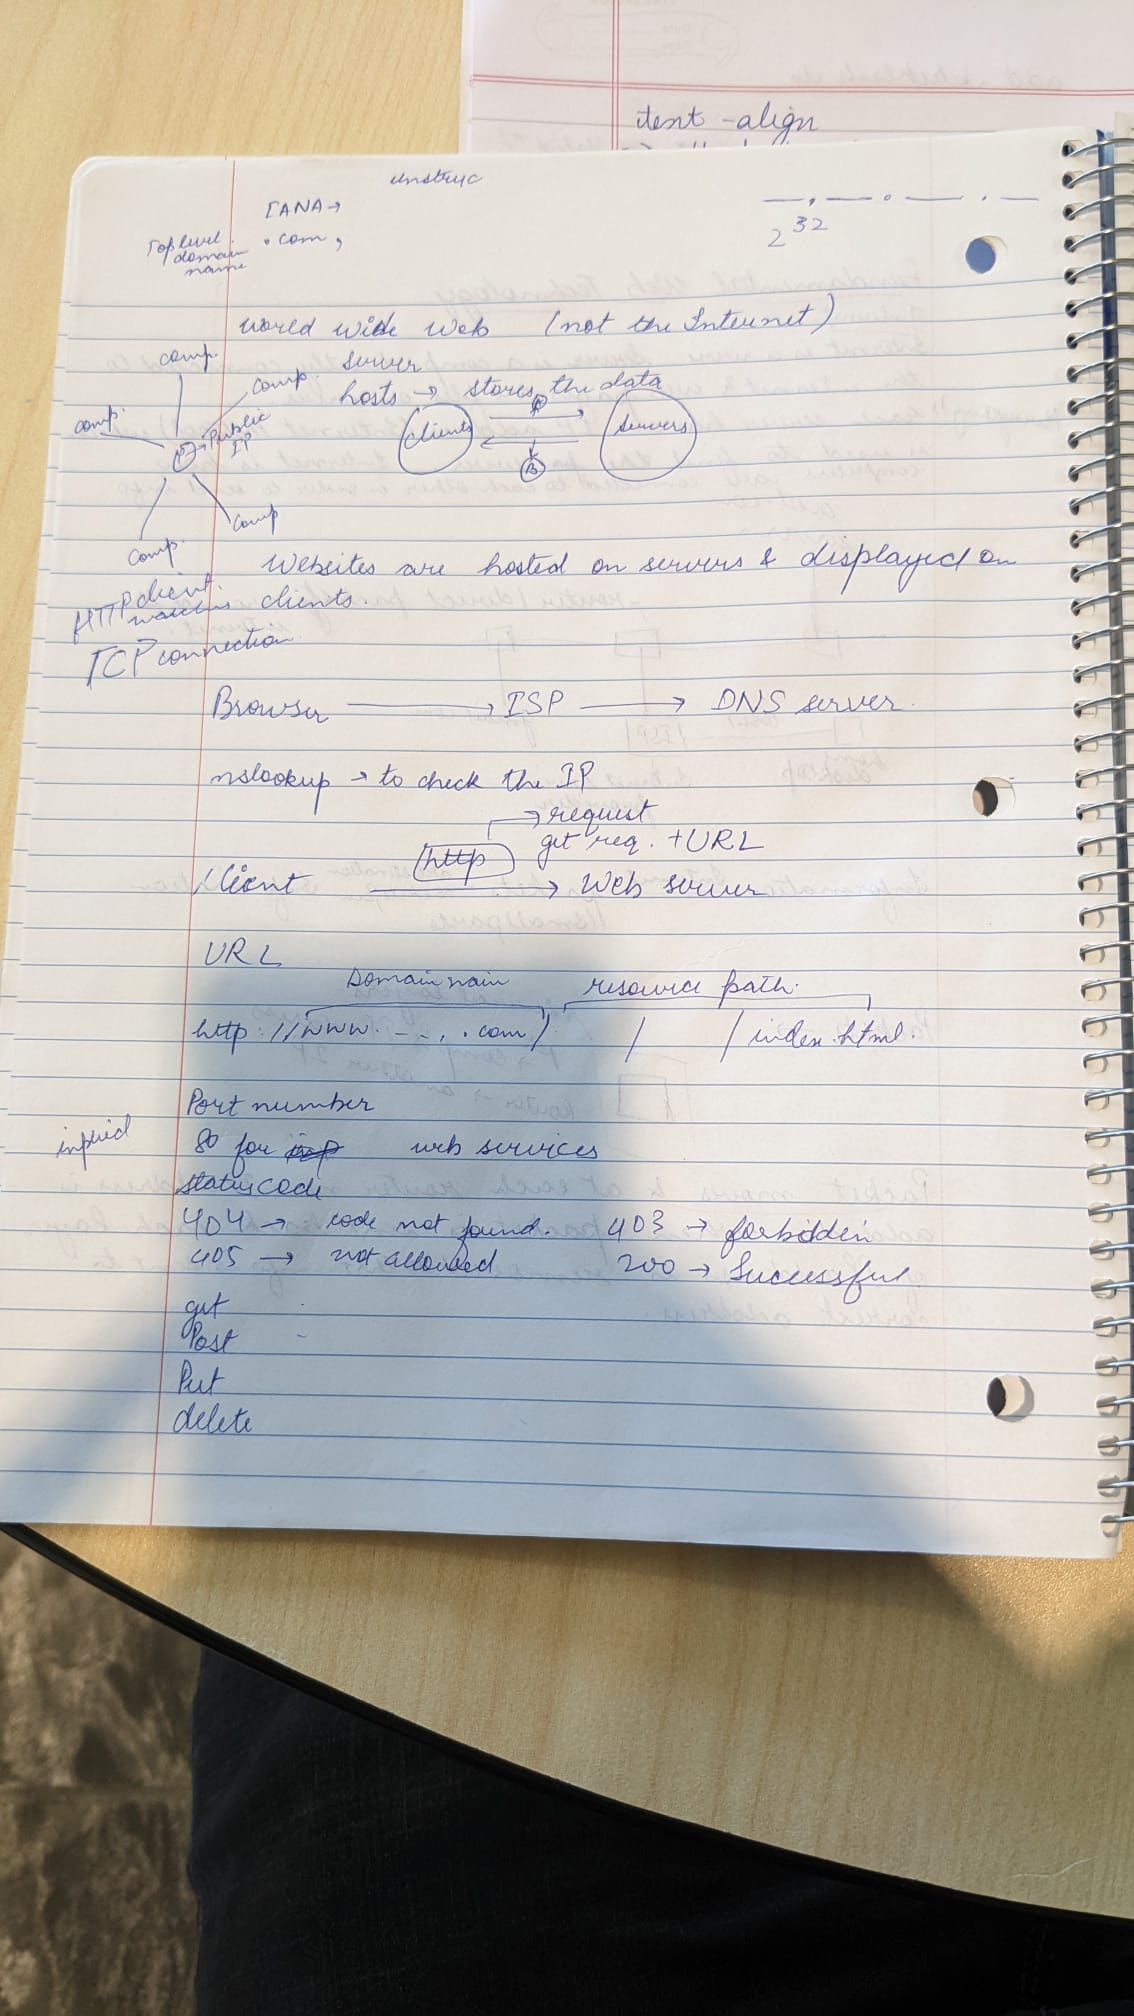 text-align
unstruc
IANA →
. com ,
Top level
domain
name
__ . __ . __ . __
2^32
World Wide Web (not the Internet)
comp.
comp.
server
hosts → stores the data
comp.
Public
IP
clients
A
servers
B
comp
comp.
Websites are hosted on servers & displayed on
clients.
HTTP client
TCP connection
Browser → ISP → DNS server.
nslookup → to check the IP
→ request
http
get req. + URL
Client → Web server
URL
Domain nain
resource path.
http://www. - - , . com / / / index.html.
Port number
implied
80 for web services
status code
404 → code not found. 403 → forbidden
405 → not allowed 200 → Sucessful
get
Post
Put
delete